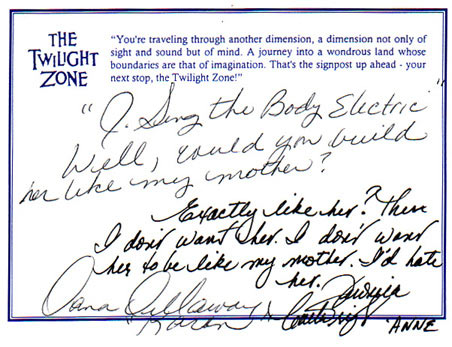 THE
TWILIGHT
ZONE
"You're traveling through another dimension, a dimension not only of
sight and sound but of mind. A journey into a wondrous land whose
boundaries are that of imagination. That's the signpost up ahead - your
next stop, the Twilight Zone!"
"I Sing the Body Electric"
Well, would you build
her like my mother?
Exactly like her? Then
I don't want her. I don't want
her to be like my mother. I'd hate
her.
Dana Dillaway
Karen
Veronica
Cartwright
ANNE